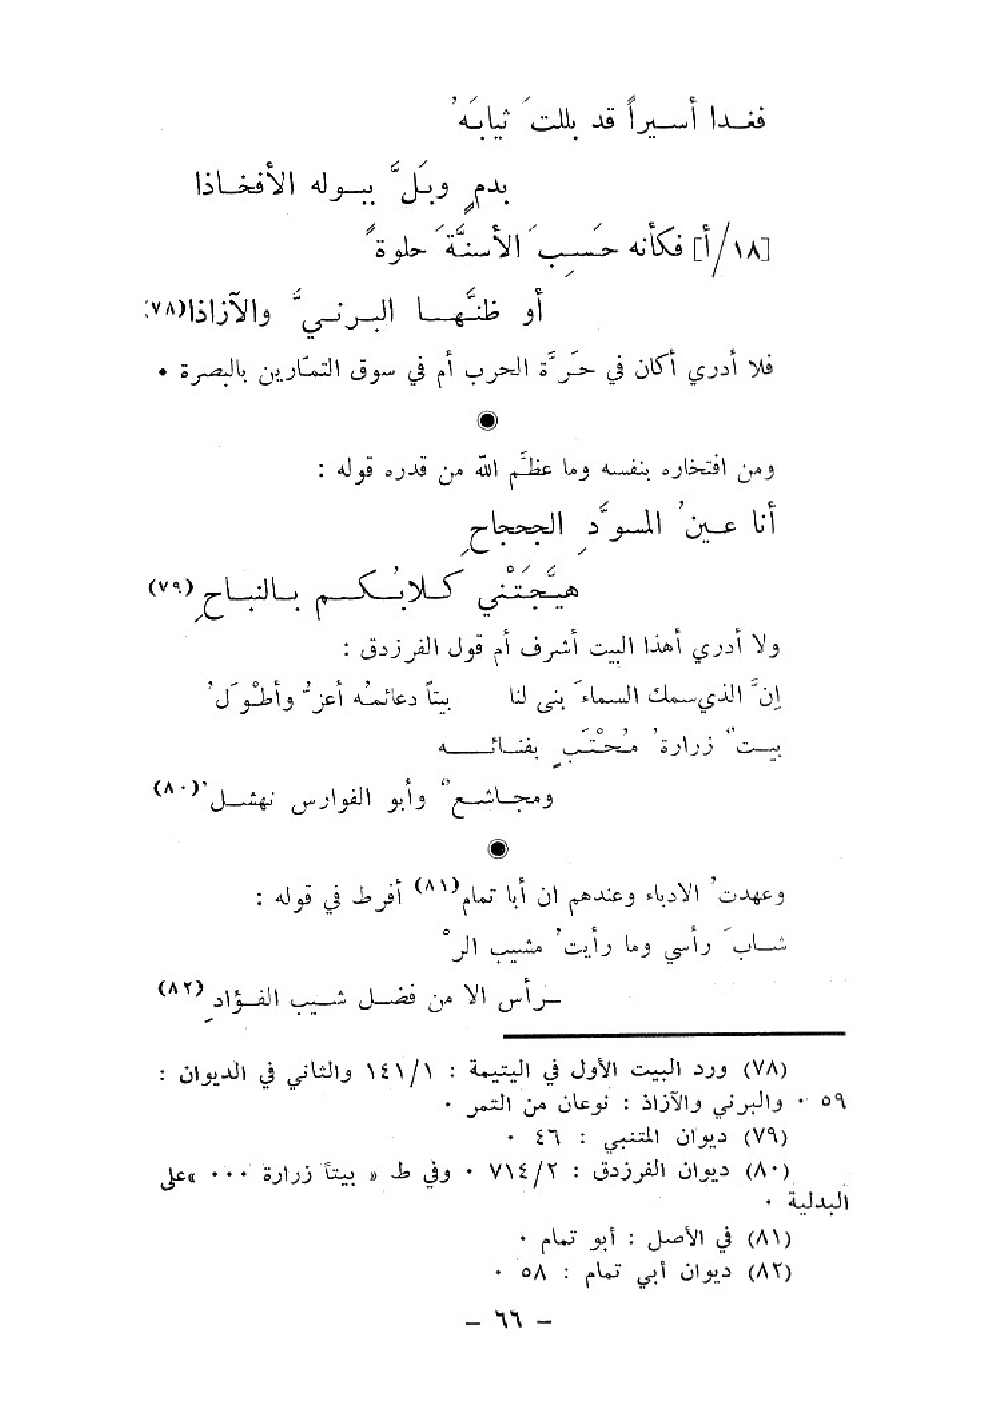 فغدا أسيراً قد بللتَ ثيابَهُ
بدمٍ وبَلَّ ببوله الأفخاذا
[١٨/أ] فكأنه حَسِبَ الأسنَّةَ حلوةً
أو ظنَّها البرنيَّ والآزاذا(٧٨)
فلا أدري أكان في حَرَّة الحرب أم في سوق التمّارين بالبصرة ٠
ومن افتخاره بنفسه وما عظَّم الله من قدره قوله :
أنا عينُ المسوَّدِ الجحجاحِ
هيَّجَتْني كلابُكم بالنباحِ (٧٩)
ولا أدري أهذا البيت أشرف أم قول الفرزدق :
إنَّ الذي سمك السماءَ بنى لنا بيتاً دعائمُه أعزُّ وأطْوَلُ
بيتٌ زرارةُ مُحْتَبٍ بفنائه
ومجاشعٌ وأبو الفوارس نهشلُ (٨٠)
وعهدتُ الادباء وعندهم ان أبا تمام(٨١) أفرط في قوله :
شابَ رأسي وما رأيتُ مشيب الرْ
رأس الا من فضل شيب الفؤادِ (٨٢)
(٧٨) ورد البيت الأول في اليتيمة : ١٤١/١ والثاني في الديوان :
٥٩ ٠ والبرني والآزاذ : نوعان من التمر ٠
(٧٩) ديوان المتنبي : ٤٦ ٠
(٨٠) ديوان الفرزدق : ٧١٤/٢ ٠ وفي ط « بيتاً زرارة ٠٠٠ » على
البدلية ٠
(٨١) في الأصل : أبو تمام ٠
(٨٢) ديوان أبي تمام : ٥٨ ٠
– ٦٦ –